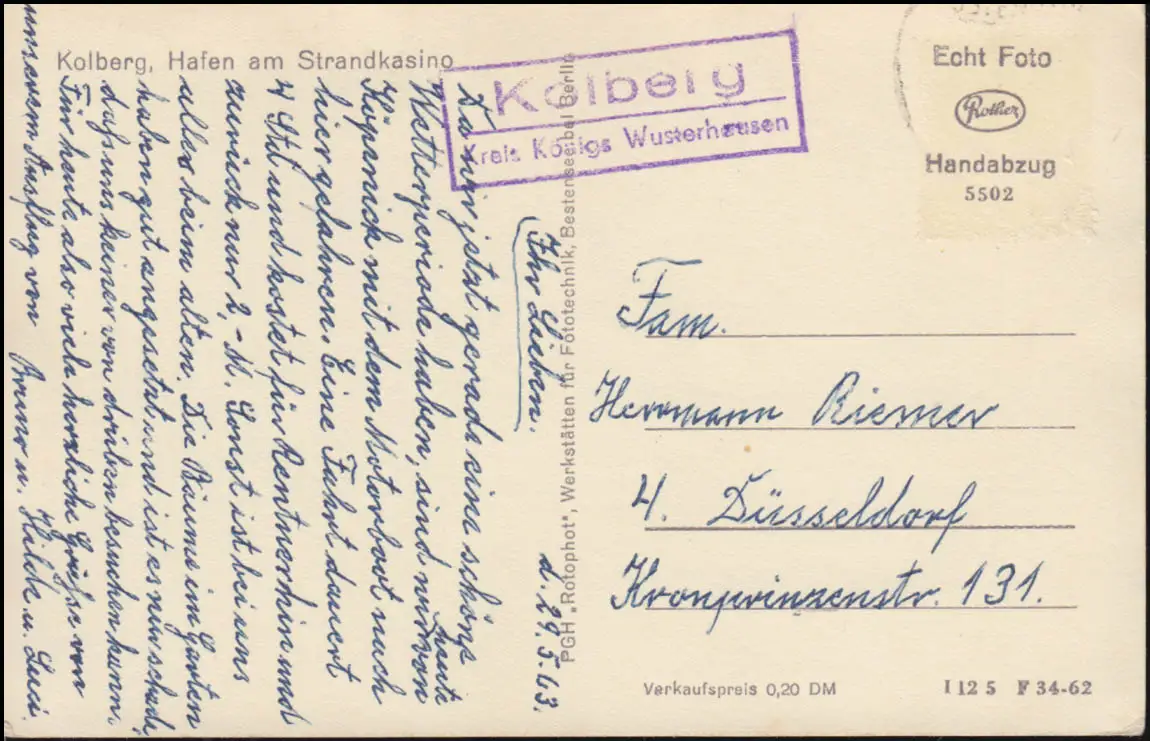 Kolberg, Hafen am Strandkasino
Kolberg
Kreis Königs Wusterhausen
Echt Foto
Rother
Handabzug
5502
d. 29.5.63.
Ihr Lieben.
Da wir jetzt gerade eine schöne
Wetterperiode haben, sind wir heute von
mit dem Motorboot nach
hier gefahren. Eine Fahrt dauert
4 Std. und kostet für Rentner hin und
zurück nur 2,- M. Sonst ist bei uns
alles beim alten. Die Bäume im Garten
haben gut angesetzt und ist es nur schade,
daß uns keiner von drüben besuchen kann.
Für heute also viele herzliche Grüße von
unserem Ausflug von
Bruno u. Hilde u. Luci.
PGH „Rotophot", Werkstätten für Fototechnik, Bestensee bei Berlin
Fam.
Herrmann Riemer
4. Düsseldorf
Kronprinzenstr. 131.
Verkaufspreis 0,20 DM
I 12 5 F 34-62